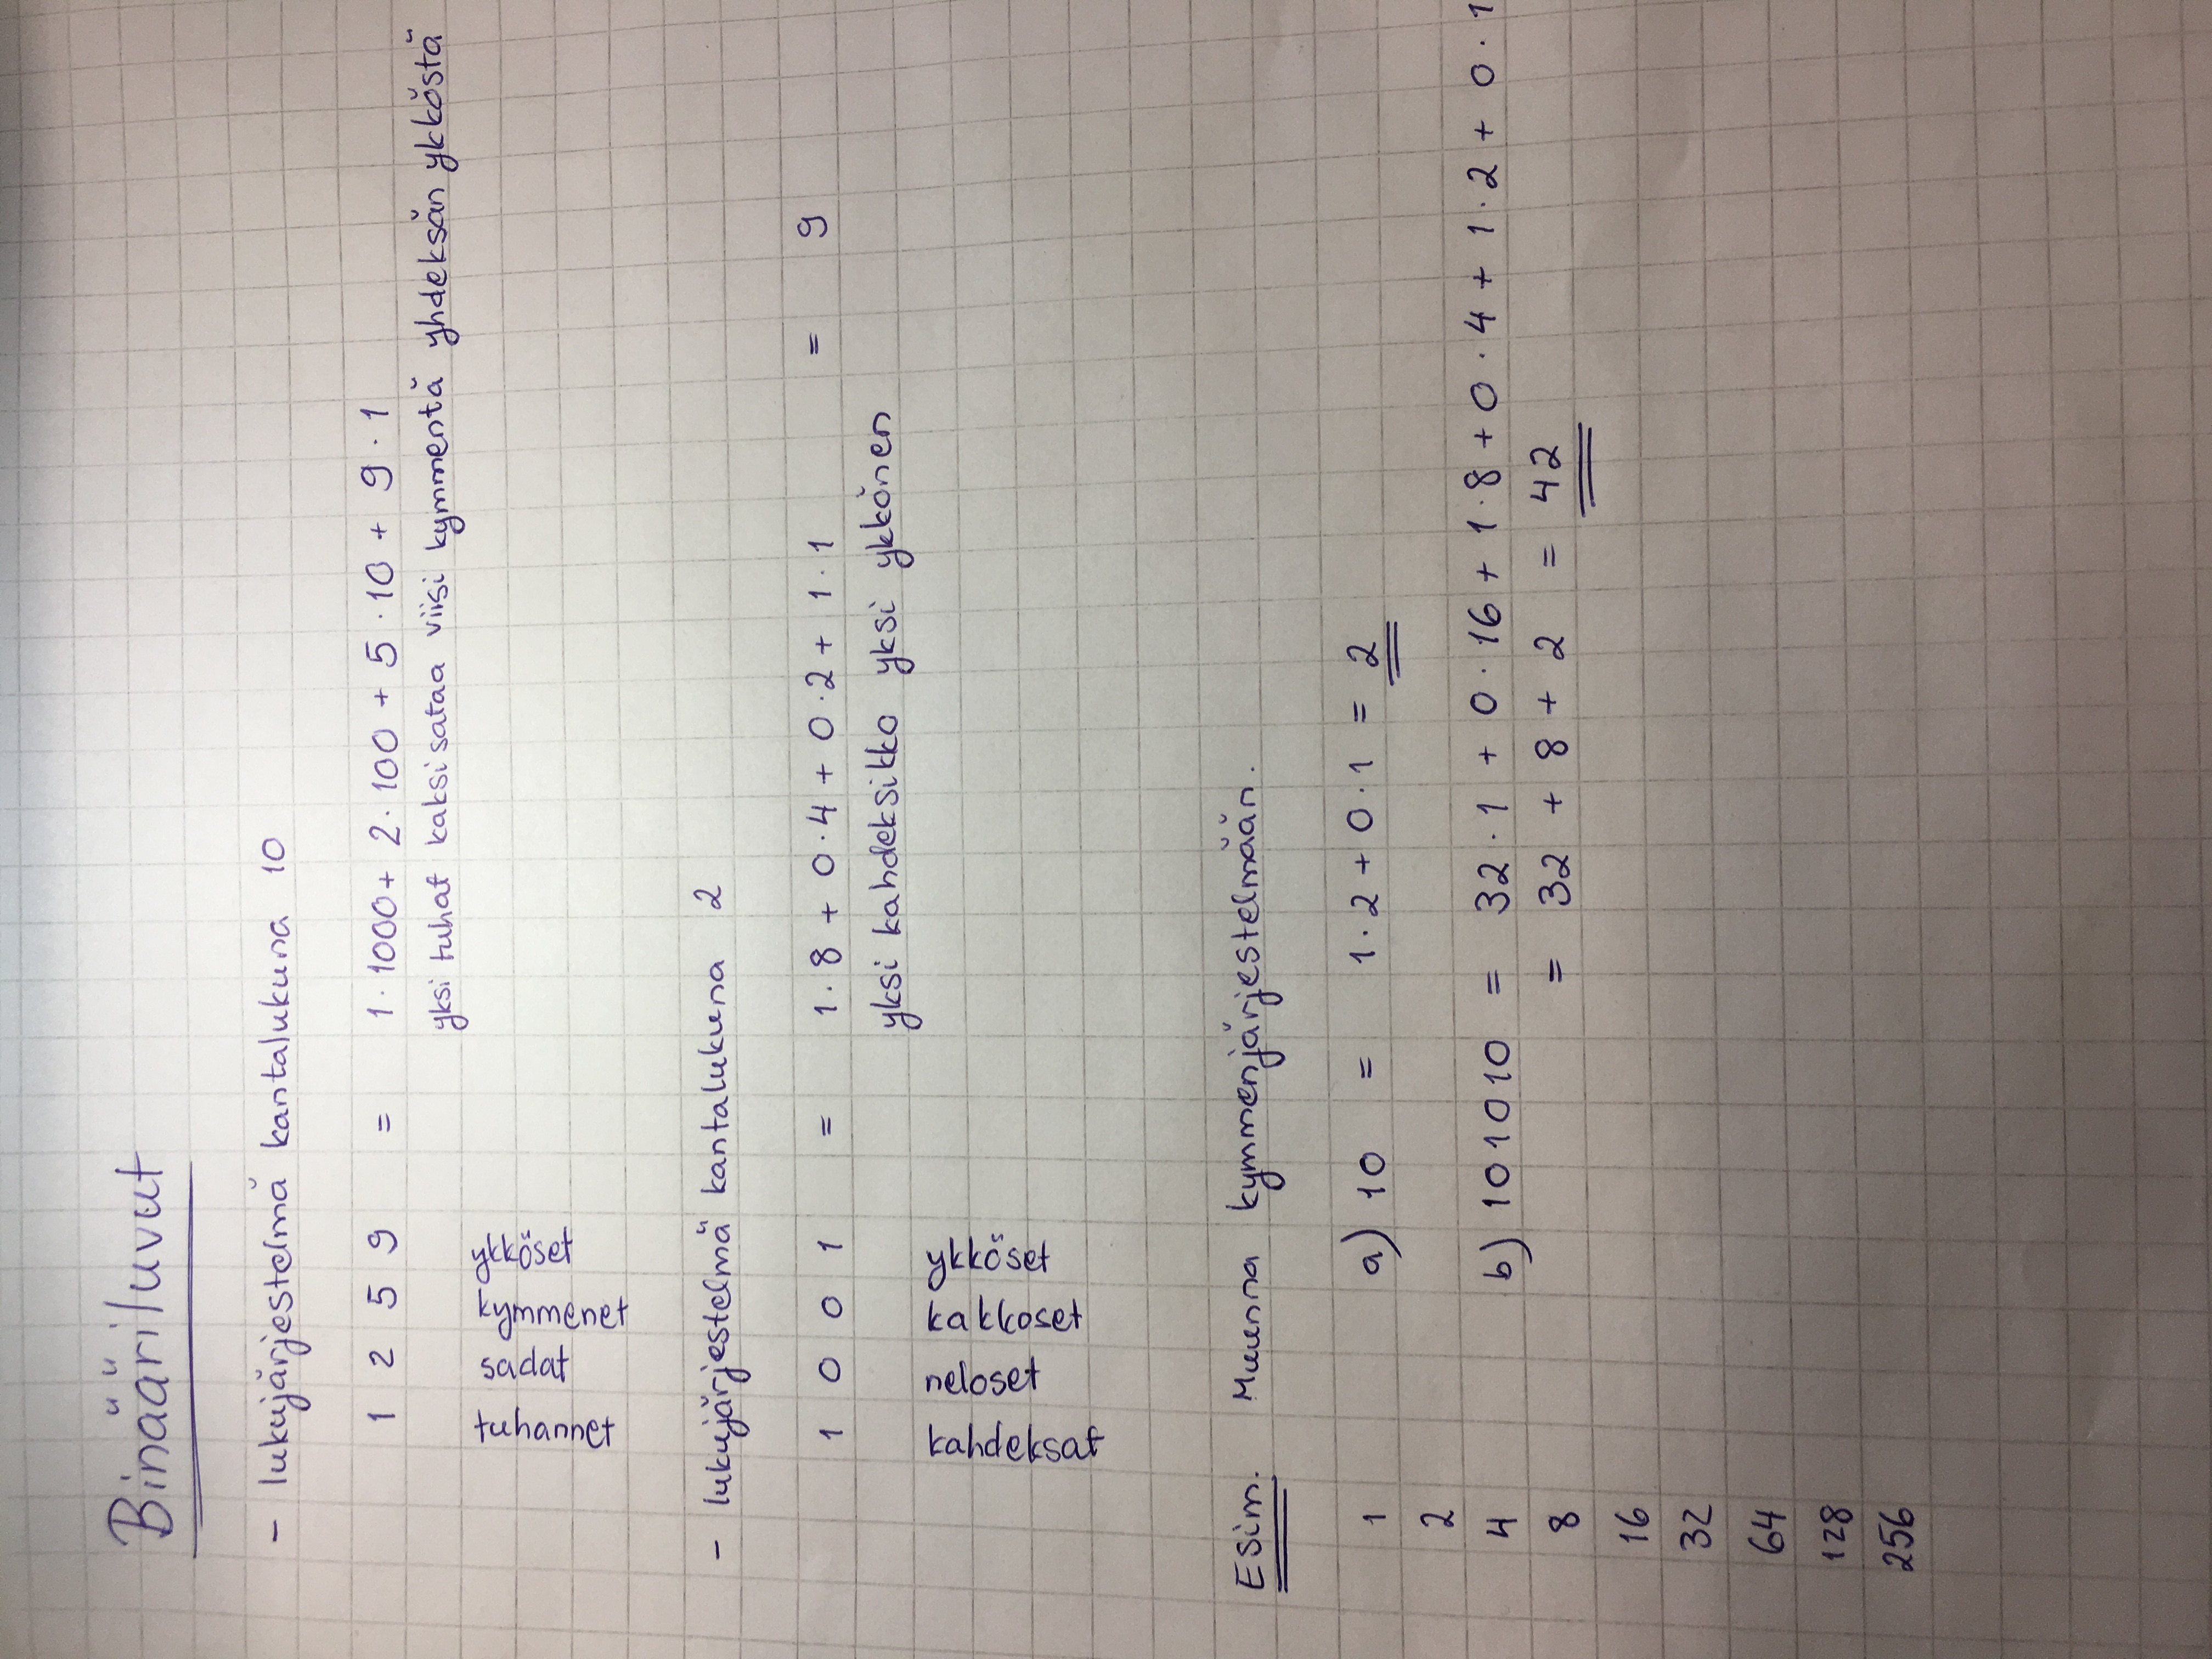 Binääriluvut
- lukujärjestelmä kantalukuna 10
1 2 5 9 = 1 · 1000 + 2 · 100 + 5 · 10 + 9 · 1
yksi tuhat kaksisataa viisi kymmentä yhdeksän ykköstä
tuhannet sadat kymmenet ykköset
- lukujärjestelmä kantalukuna 2
1 0 0 1 = 1 · 8 + 0 · 4 + 0 · 2 + 1 · 1 = 9
yksi kahdeksikko yksi ykkönen
kahdeksat neloset kakkoset ykköset
Esim. Muunna kymmenjärjestelmään.
1 a) 10 = 1 · 2 + 0 · 1 = 2
2
4 b) 101010 = 32 · 1 + 0 · 16 + 1 · 8 + 0 · 4 + 1 · 2 + 0 · 1
8 = 32 + 8 + 2 = 42
16
32
64
128
256